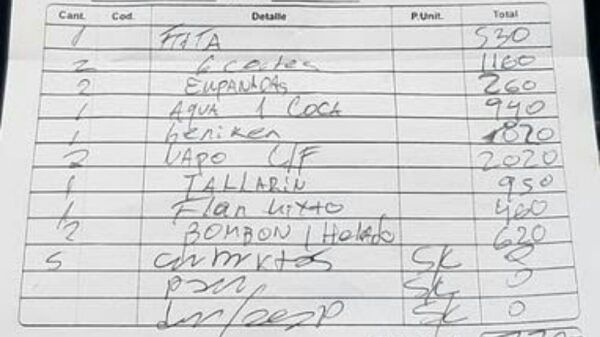 Cant. Cod. Detalle P.Unit. Total
1 FAITA 530
2 6 cortes 1160
2 EMPANADAS 260
1 AQUA 1 COCA 940
1 heniken 820
2 VAPO C/F 2020
1 TALLARIN 950
1 Flan Mixto 460
2 BOMBON 1 Helado 620
5 cubiertos SK 0
pan SK 0
SK 0